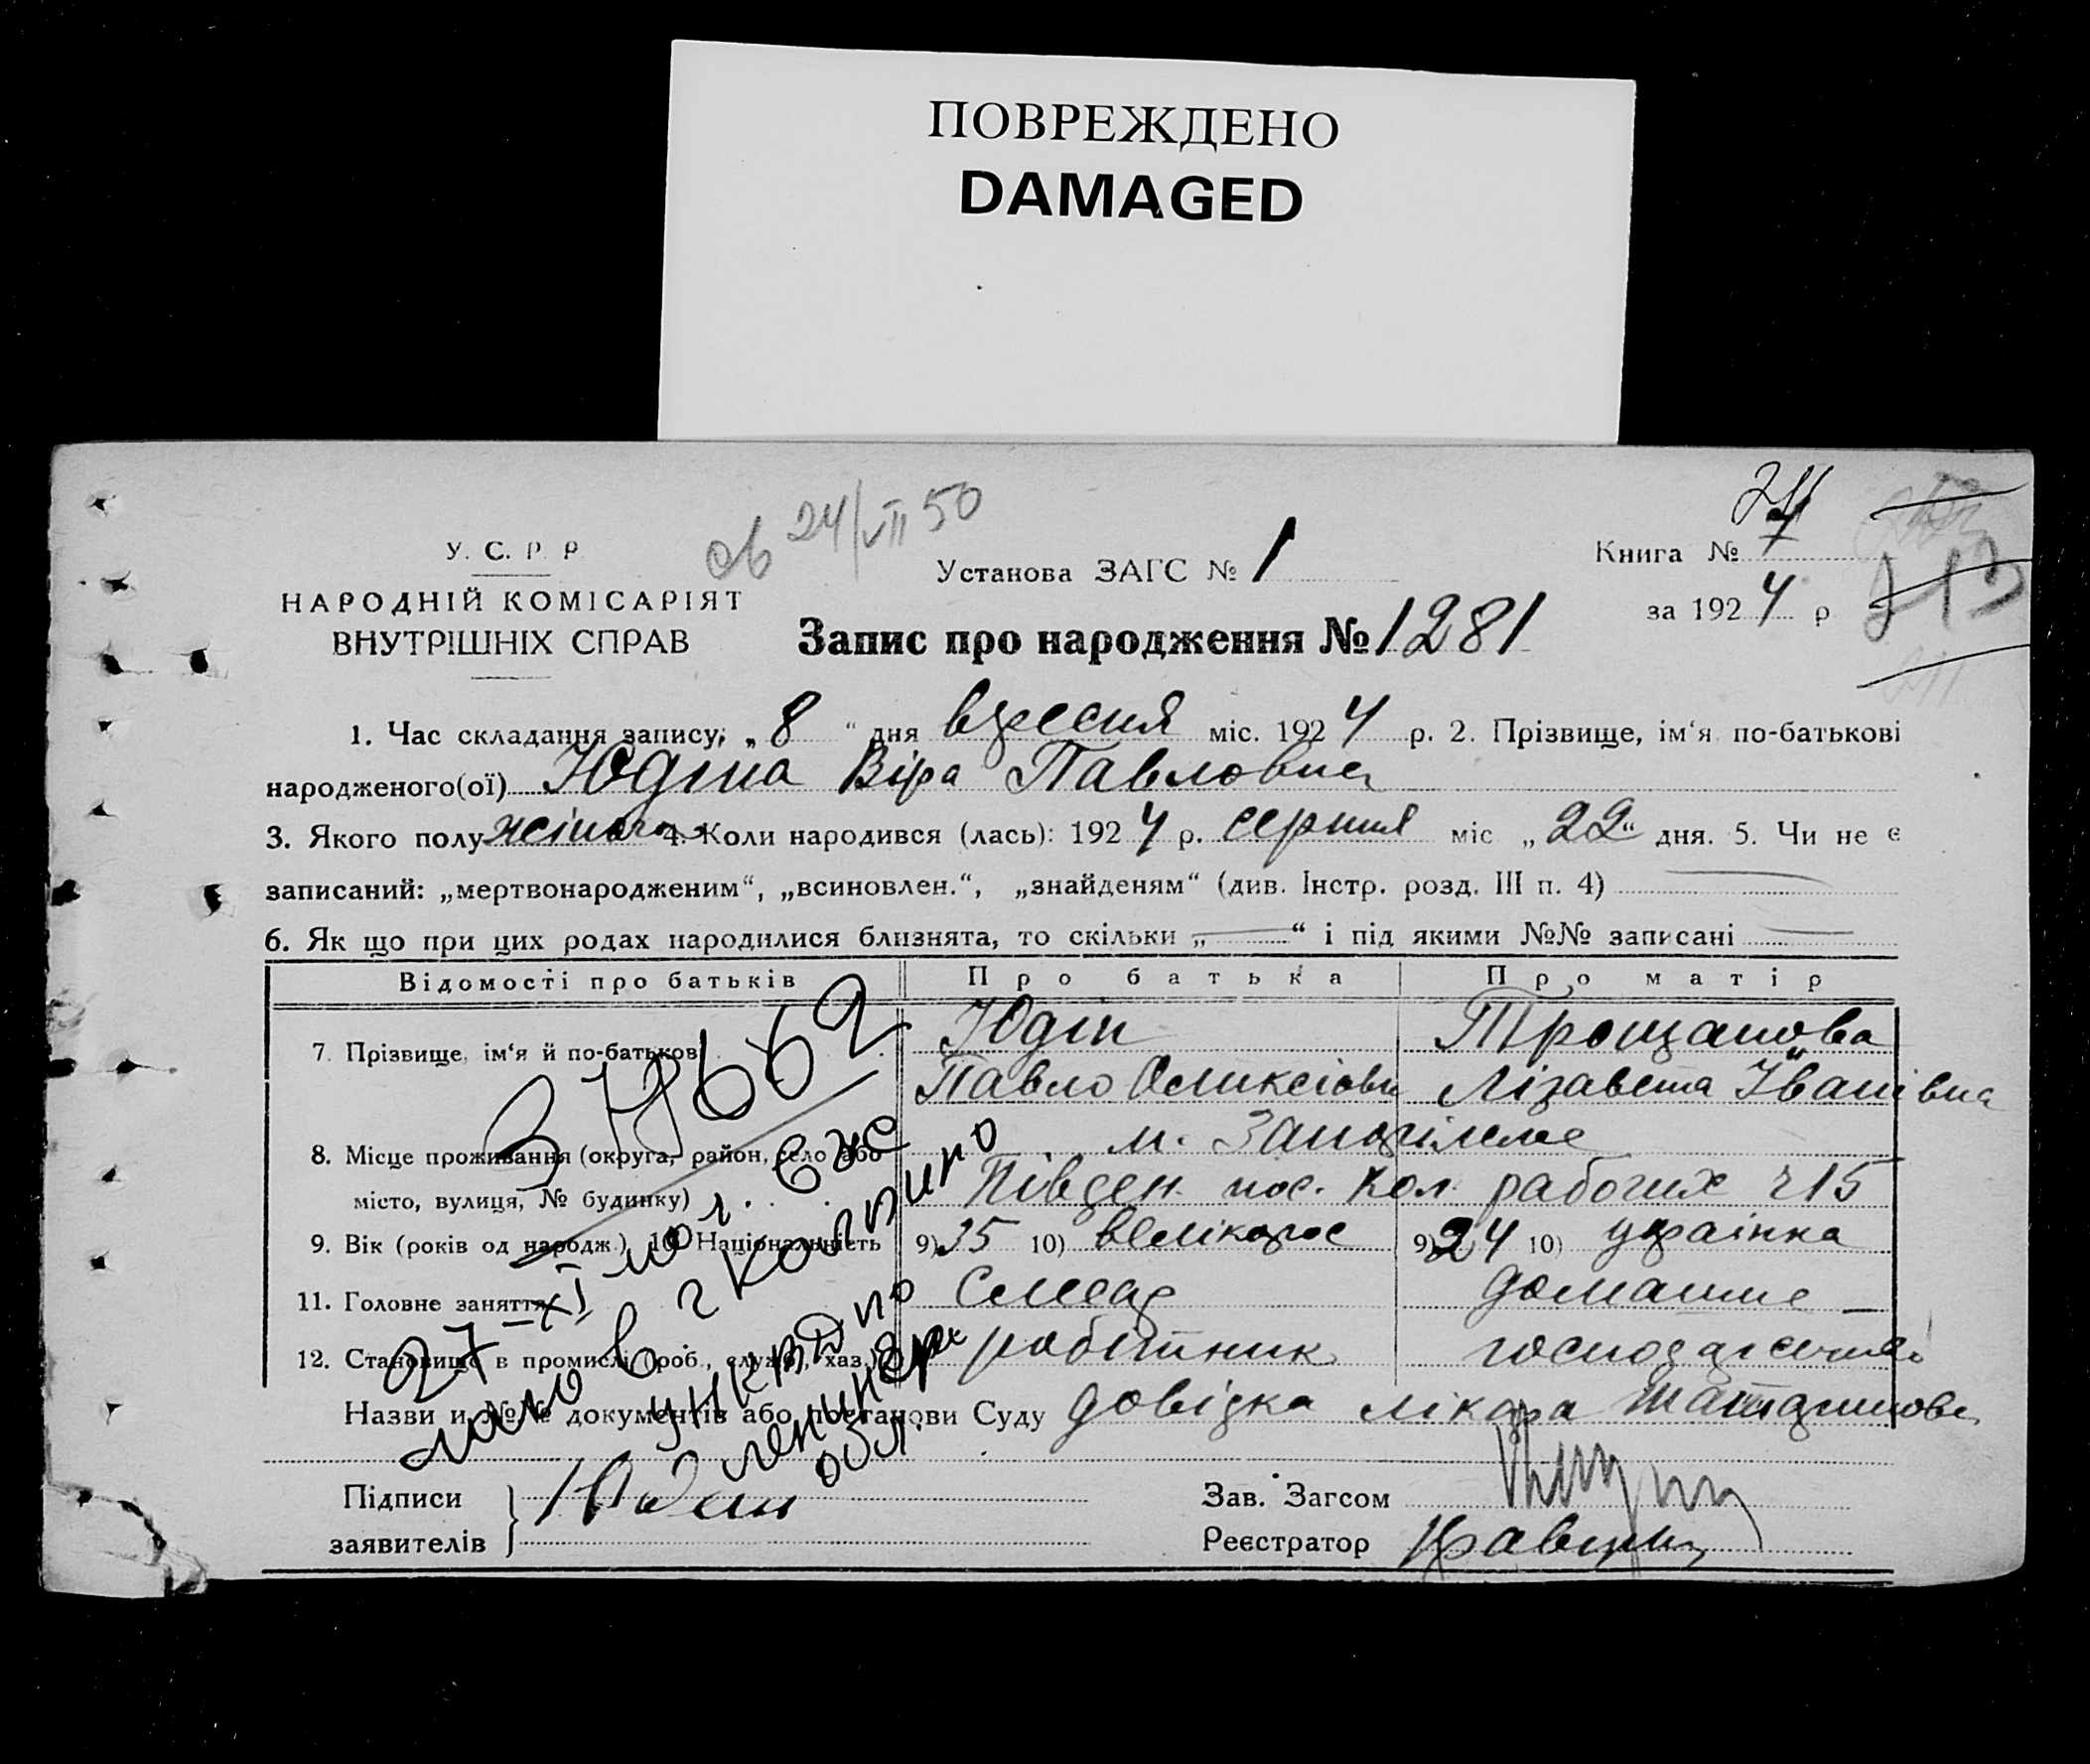 ПОВРЕЖДЕНО
DAMAGED
24/VII 50
У. С. Р. Р.
НАРОДНІЙ КОМІСАРІЯТ
ВНУТРІШНІХ СПРАВ
Установа ЗАГС № 1
Книга №
за 1924 р
Запис про народження № 1281
1. Час складання запису: „8“ дня вересня міс. 1924 р. 2. Прізвище, ім‘я по-батькові
народженого(ої) Юдіна Віра Павловна
3. Якого полу жіноч 4. Коли народився (лась): 1924 р. серпня міс „22“ дня. 5. Чи не є
записаний: „мертвонародженим“, „всиновлен.“, „знайденям“ (див. Інстр. розд. III п. 4)
6. Як що при цих родах народилися близнята, то скільки „—“ і під якими №№ записані
Відомості про батьків Про батька Про матір
7. Прізвище, ім‘я й по-батькові Юдін Трощанова
Павло Олексіови Лізавета Іванівна
8. Місце проживання (округа, район, село або м. Запоріжже
місто, вулиця, № будинку) Південь. пос. Кол. рабочих ч 15
9. Вік (років од народж.) 10. Національність 9) 35 10) велікорос 9) 24 10) українка
11. Головне заняття Слесар домашнє
12. Становище в промислі (роб., служб., хаз.) робітник
Назви и №№ документів або постанови Суду довідка лікаря
37662
27-XI
в г Колпино
УНКВД по
Ленингр
обл.
Підписи
заявителів
Юдин
Зав. Загсом
Реєстратор